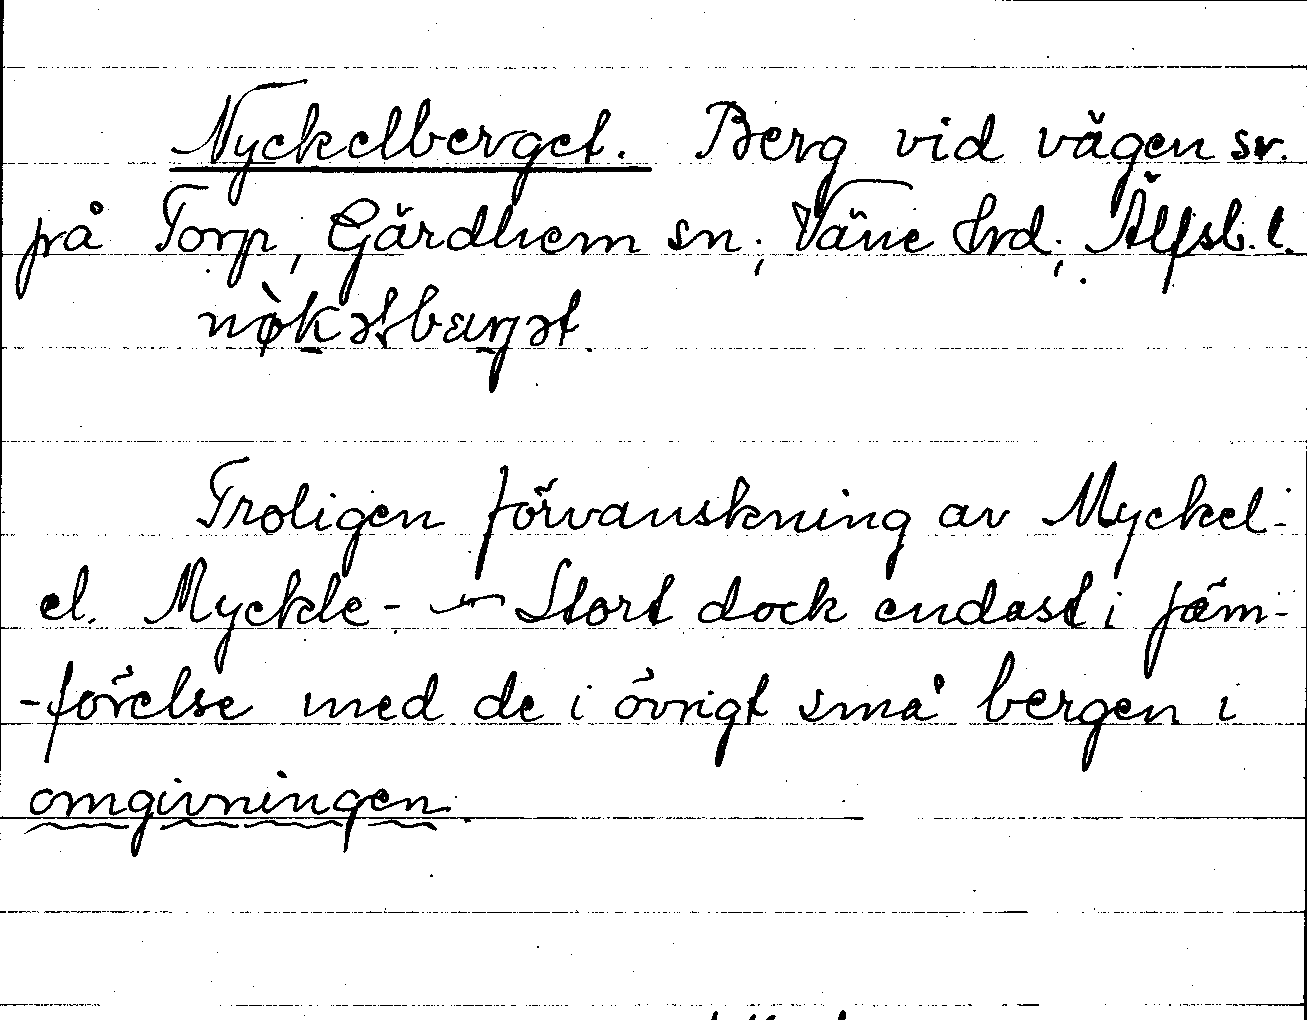 Nyckelberget. Berg vid vägen sv.
på Torp, Gärdhem sn; Väne hrd; Älfsb. l.
nø̀kəlbærjət.
Troligen förvanskning av Myckel-
el. Myckle- Stort dock endast i jäm-
-förelse med de i övrigt små bergen i
omgivningen.